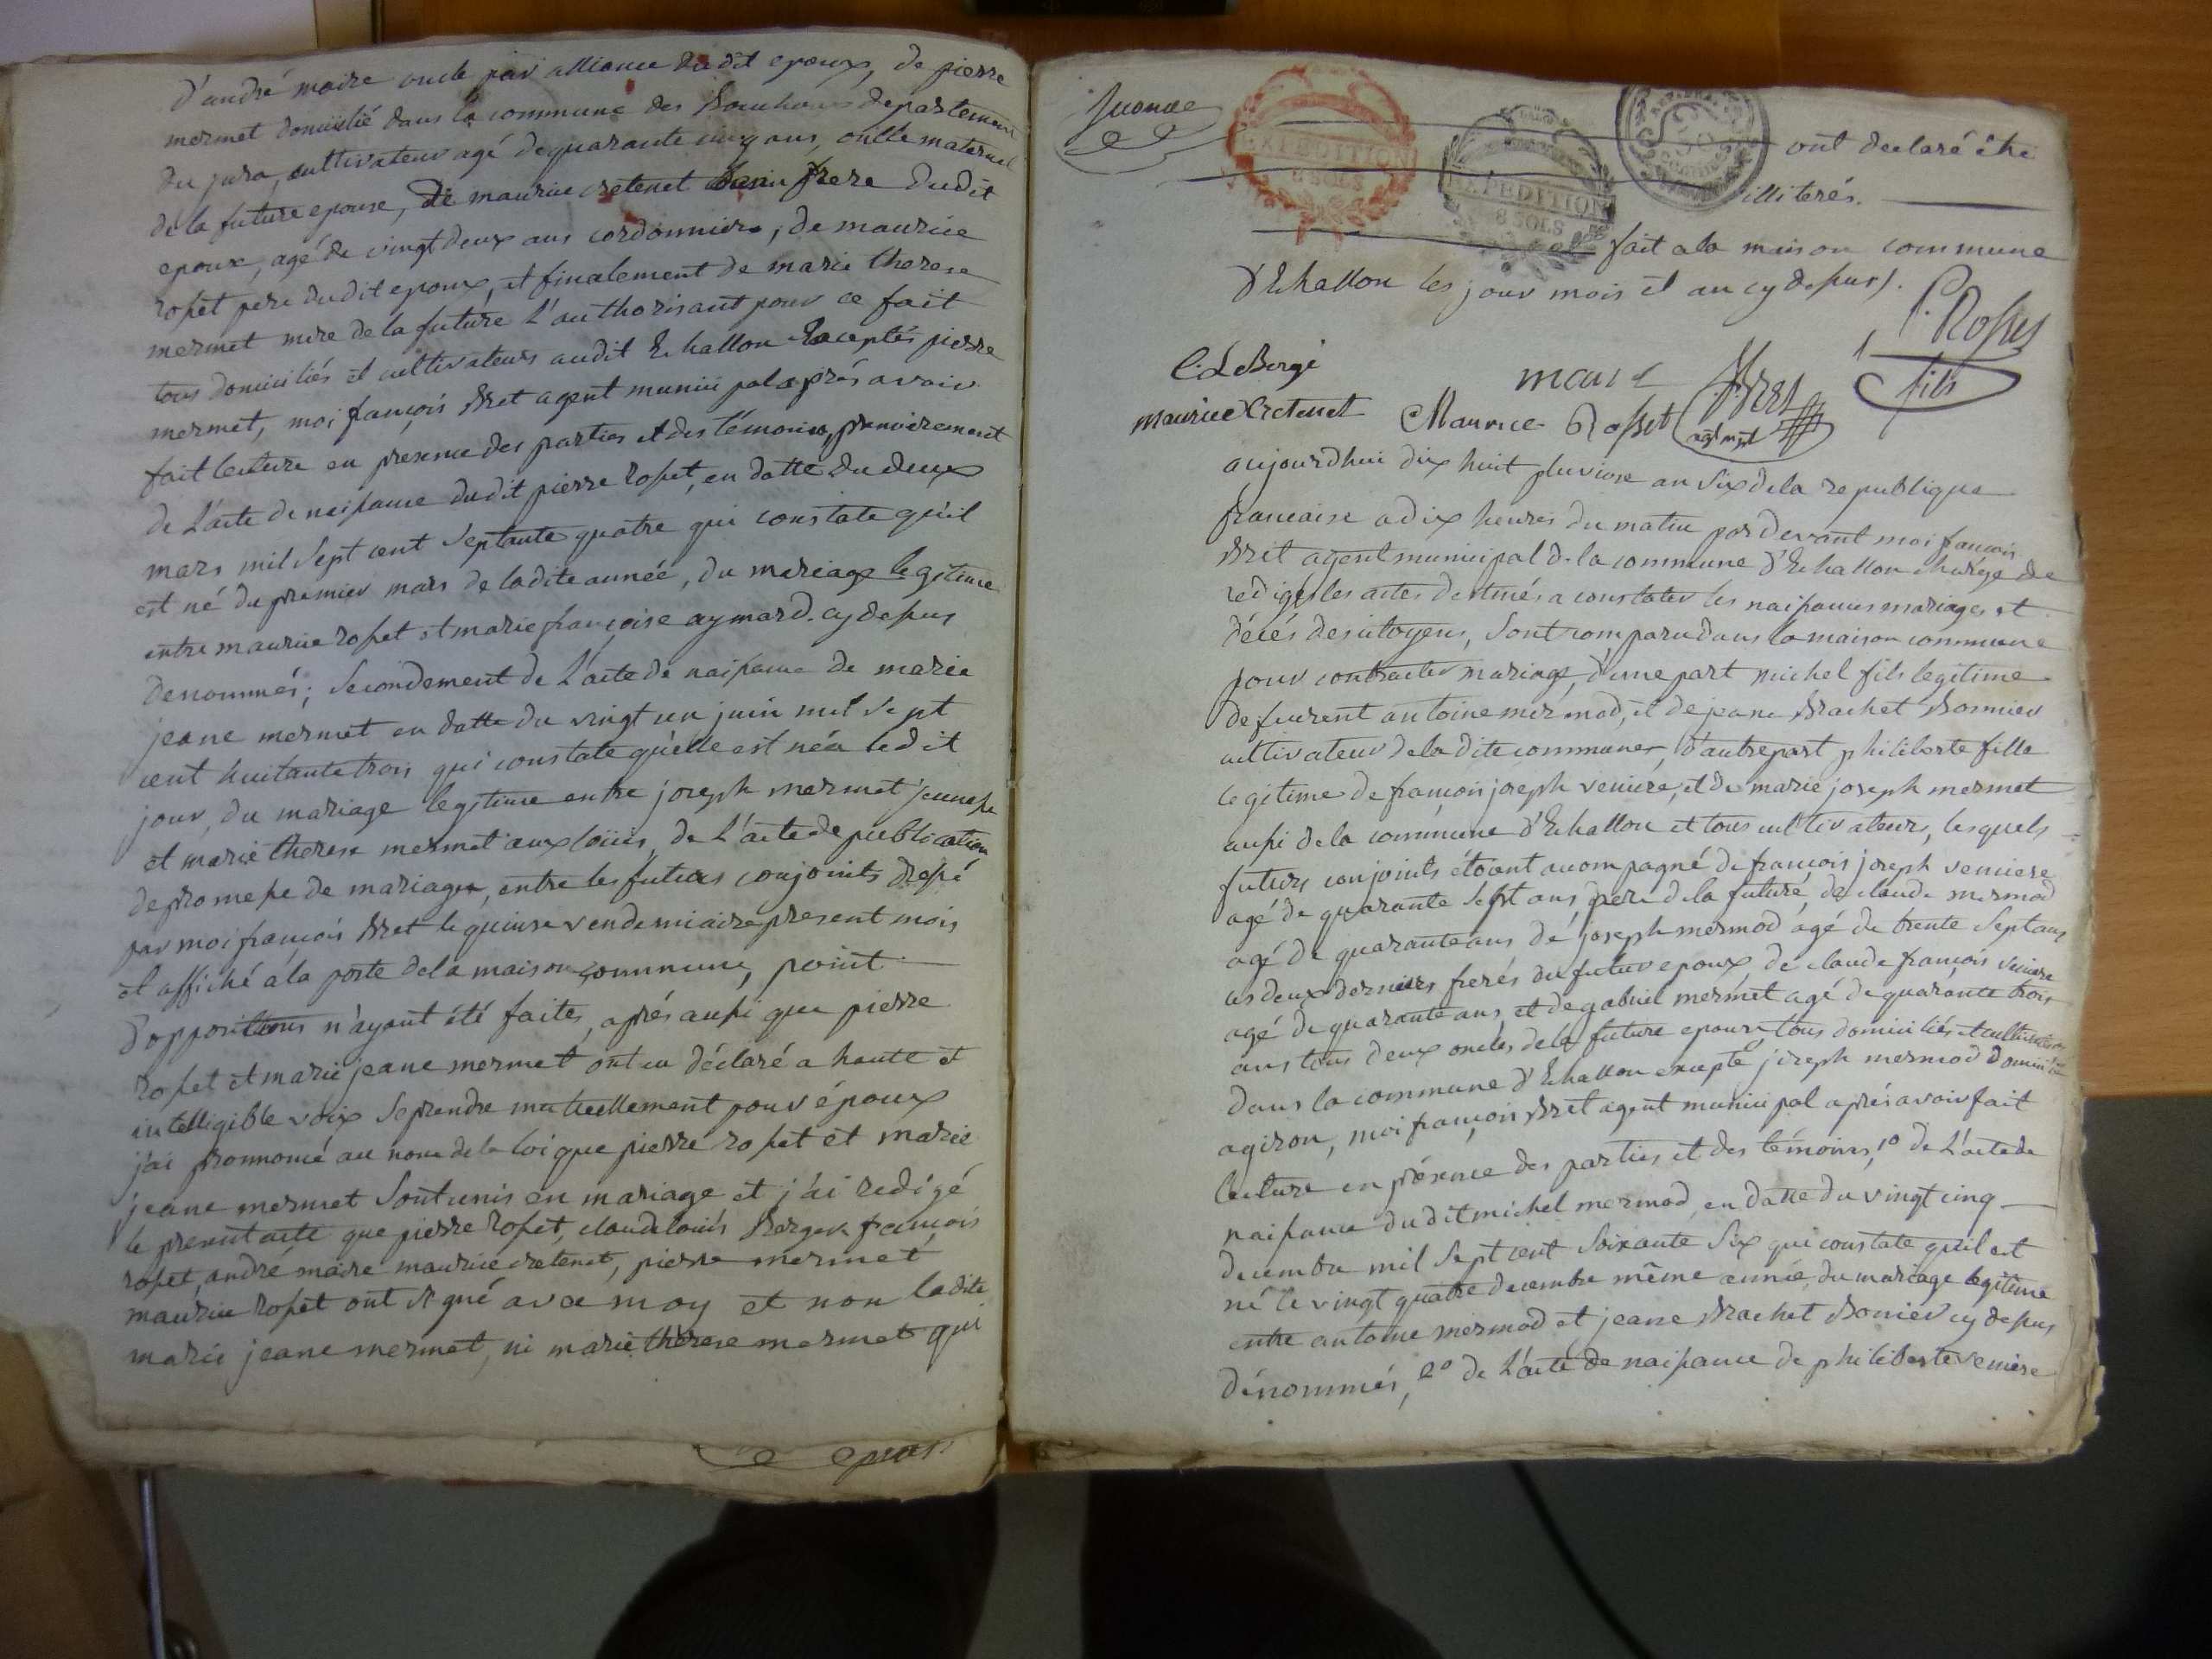 d'andré maire oncle par alliance dudit epoux, de pierre
mermet domicilié dans la commune des departement
du jura, cultivateur agé de quarante cinq ans, oncle maternel
de la future epouse, de maurice cretenet frere dudit
epoux, agé de vingt deux ans cordonnier, de maurice
rosset pere dudit epoux, et finalement de marie therese
mermet mere de la future l'authorisant pour ce fait
tous domiciliés et cultivateurs audit Echallon Exceptés pierre
mermet, moi françois Bret agent municipal après avoir
fait lecture en presence des parties et des témoins, premierement
de l'acte de naissance dudit pierre rosset, en datte du deux
mars mil sept cent septante quatre qui constate qu'il
est né du premier mars de ladite année, du mariage legitime
entre maurice rosset et marie françoise aymard cy dessus
denommés; secondement de l'acte de naissance de marie
jeane mermet en datte du vingt un juin mil sept
cent huitante trois qui constate qu'elle est née ledit
jour, du mariage legitime entre joseph mermet
et marie therese mermet de l'acte de publication
de promesse de mariage, entre les futurs conjoints dressé
par moi françois Bret le quinse vendemiaire present mois
et affiché a la porte de la maison commune, point
d'oppositions n'ayant été faites, après aussi que pierre
rosset et marie jeane mermet ont eu déclaré a haute et
intelligible voix se prendre mutuellement pour époux
j'ai prononcé au nom de la loi que pierre rosset et marie
jeane mermet sont unis en mariage et j'ai redigé
le present acte que pierre rosset, claude louis Berger françois
rosset, andré maire maurice cretenet, pierre mermet
maurice rosset ont signé avec moy et non ladite
marie jeane mermet, ni marie therese mermet qui
ont declaré être
illiterés.
EXPEDITION
8 SOLS
EXPEDITION
8 SOLS
fait a la maison commune
d'Echallon les jour mois et an cy dessus.
P. Rosset
fils
maurice Cretenet Maurice Rosset
aujourdhui dix huit pluviose an six de la republique
francaise a dix heures du matin par devant moi françois
Bret agent municipal de la commune d'Echallon charge de
rediger les actes destinés a constater les naissances mariages et
décés des citoyens, sont comparu dans la maison commune
pour contracter mariage, d'une part michel fils legitime
de feurent antoine mermod, et de jeane Brachet Bonnier
cultivateur de la dite commune, d'autre part philiberte fille
legitime de françois joseph veniere, et de marie joseph mermet
aussi de la commune d'Echallon et tous cultivateurs, lesquels
futurs conjoints étoient accompagné de françois joseph veniere
agé de quarante sept ans pere de la future, de claude mermod
agé de quarante ans de joseph mermod agé de trente sept ans
ces deux derniers freres du futur epoux, de claude françois veniere
agé de quarante ans, et de gabriel mermet agé de quarante trois
ans tous deux oncles de la future epouse tous domiciliés et cultivateurs
dans la commune d'Echallon excepté joseph mermod domicilié
a giron, moi françois Bret agent municipal après avoir fait
lecture en présence des parties et des témoins, 1° de l'acte de
naissance dudit michel mermod, en datte du vingt cinq
decembre mil sept cent soixante six qui constate qu'il est
né le vingt quatre decembre même année, du mariage legitime
entre antoine mermod et jeane Brachet Bonier cy dessus
dénommés, 2° de l'acte de naissance de philiberte veniere